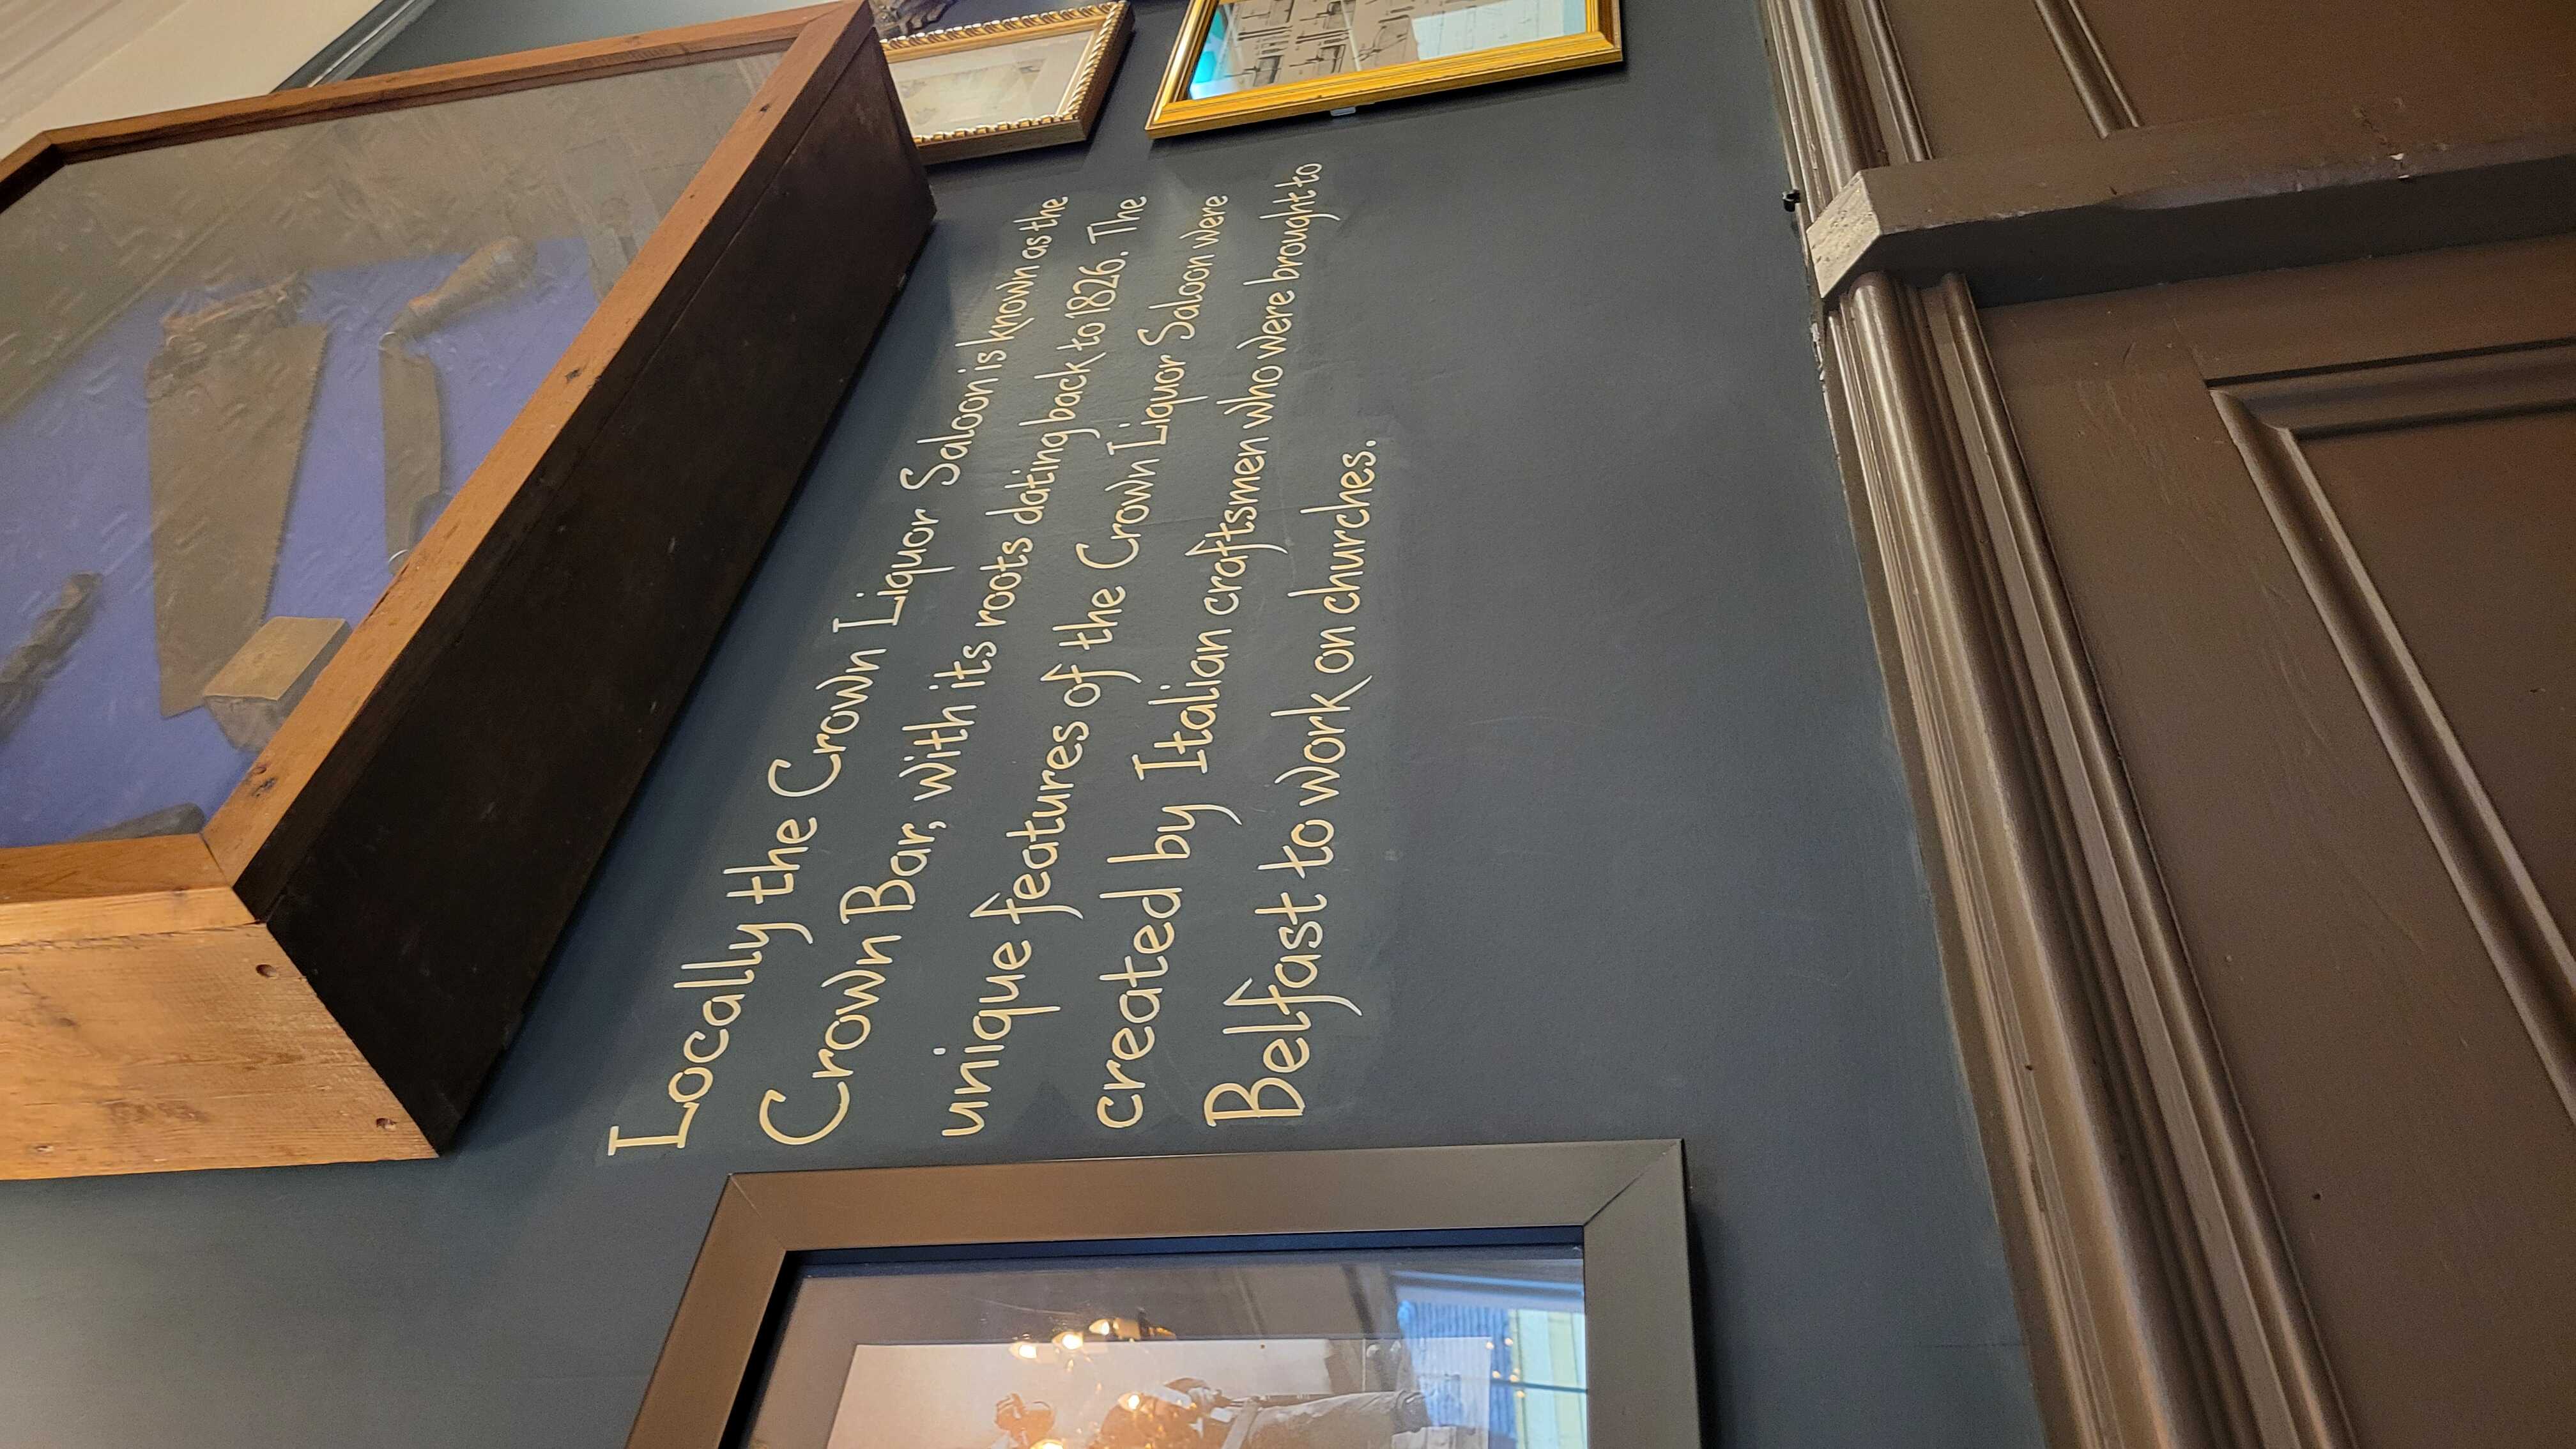 Locally the Crown Liquor Saloon is known as the
Crown Bar, with its roots dating back to 1826. The
unique features of the Crown Liquor Saloon were
created by Italian craftsmen who were brought to
Belfast to work on churches.